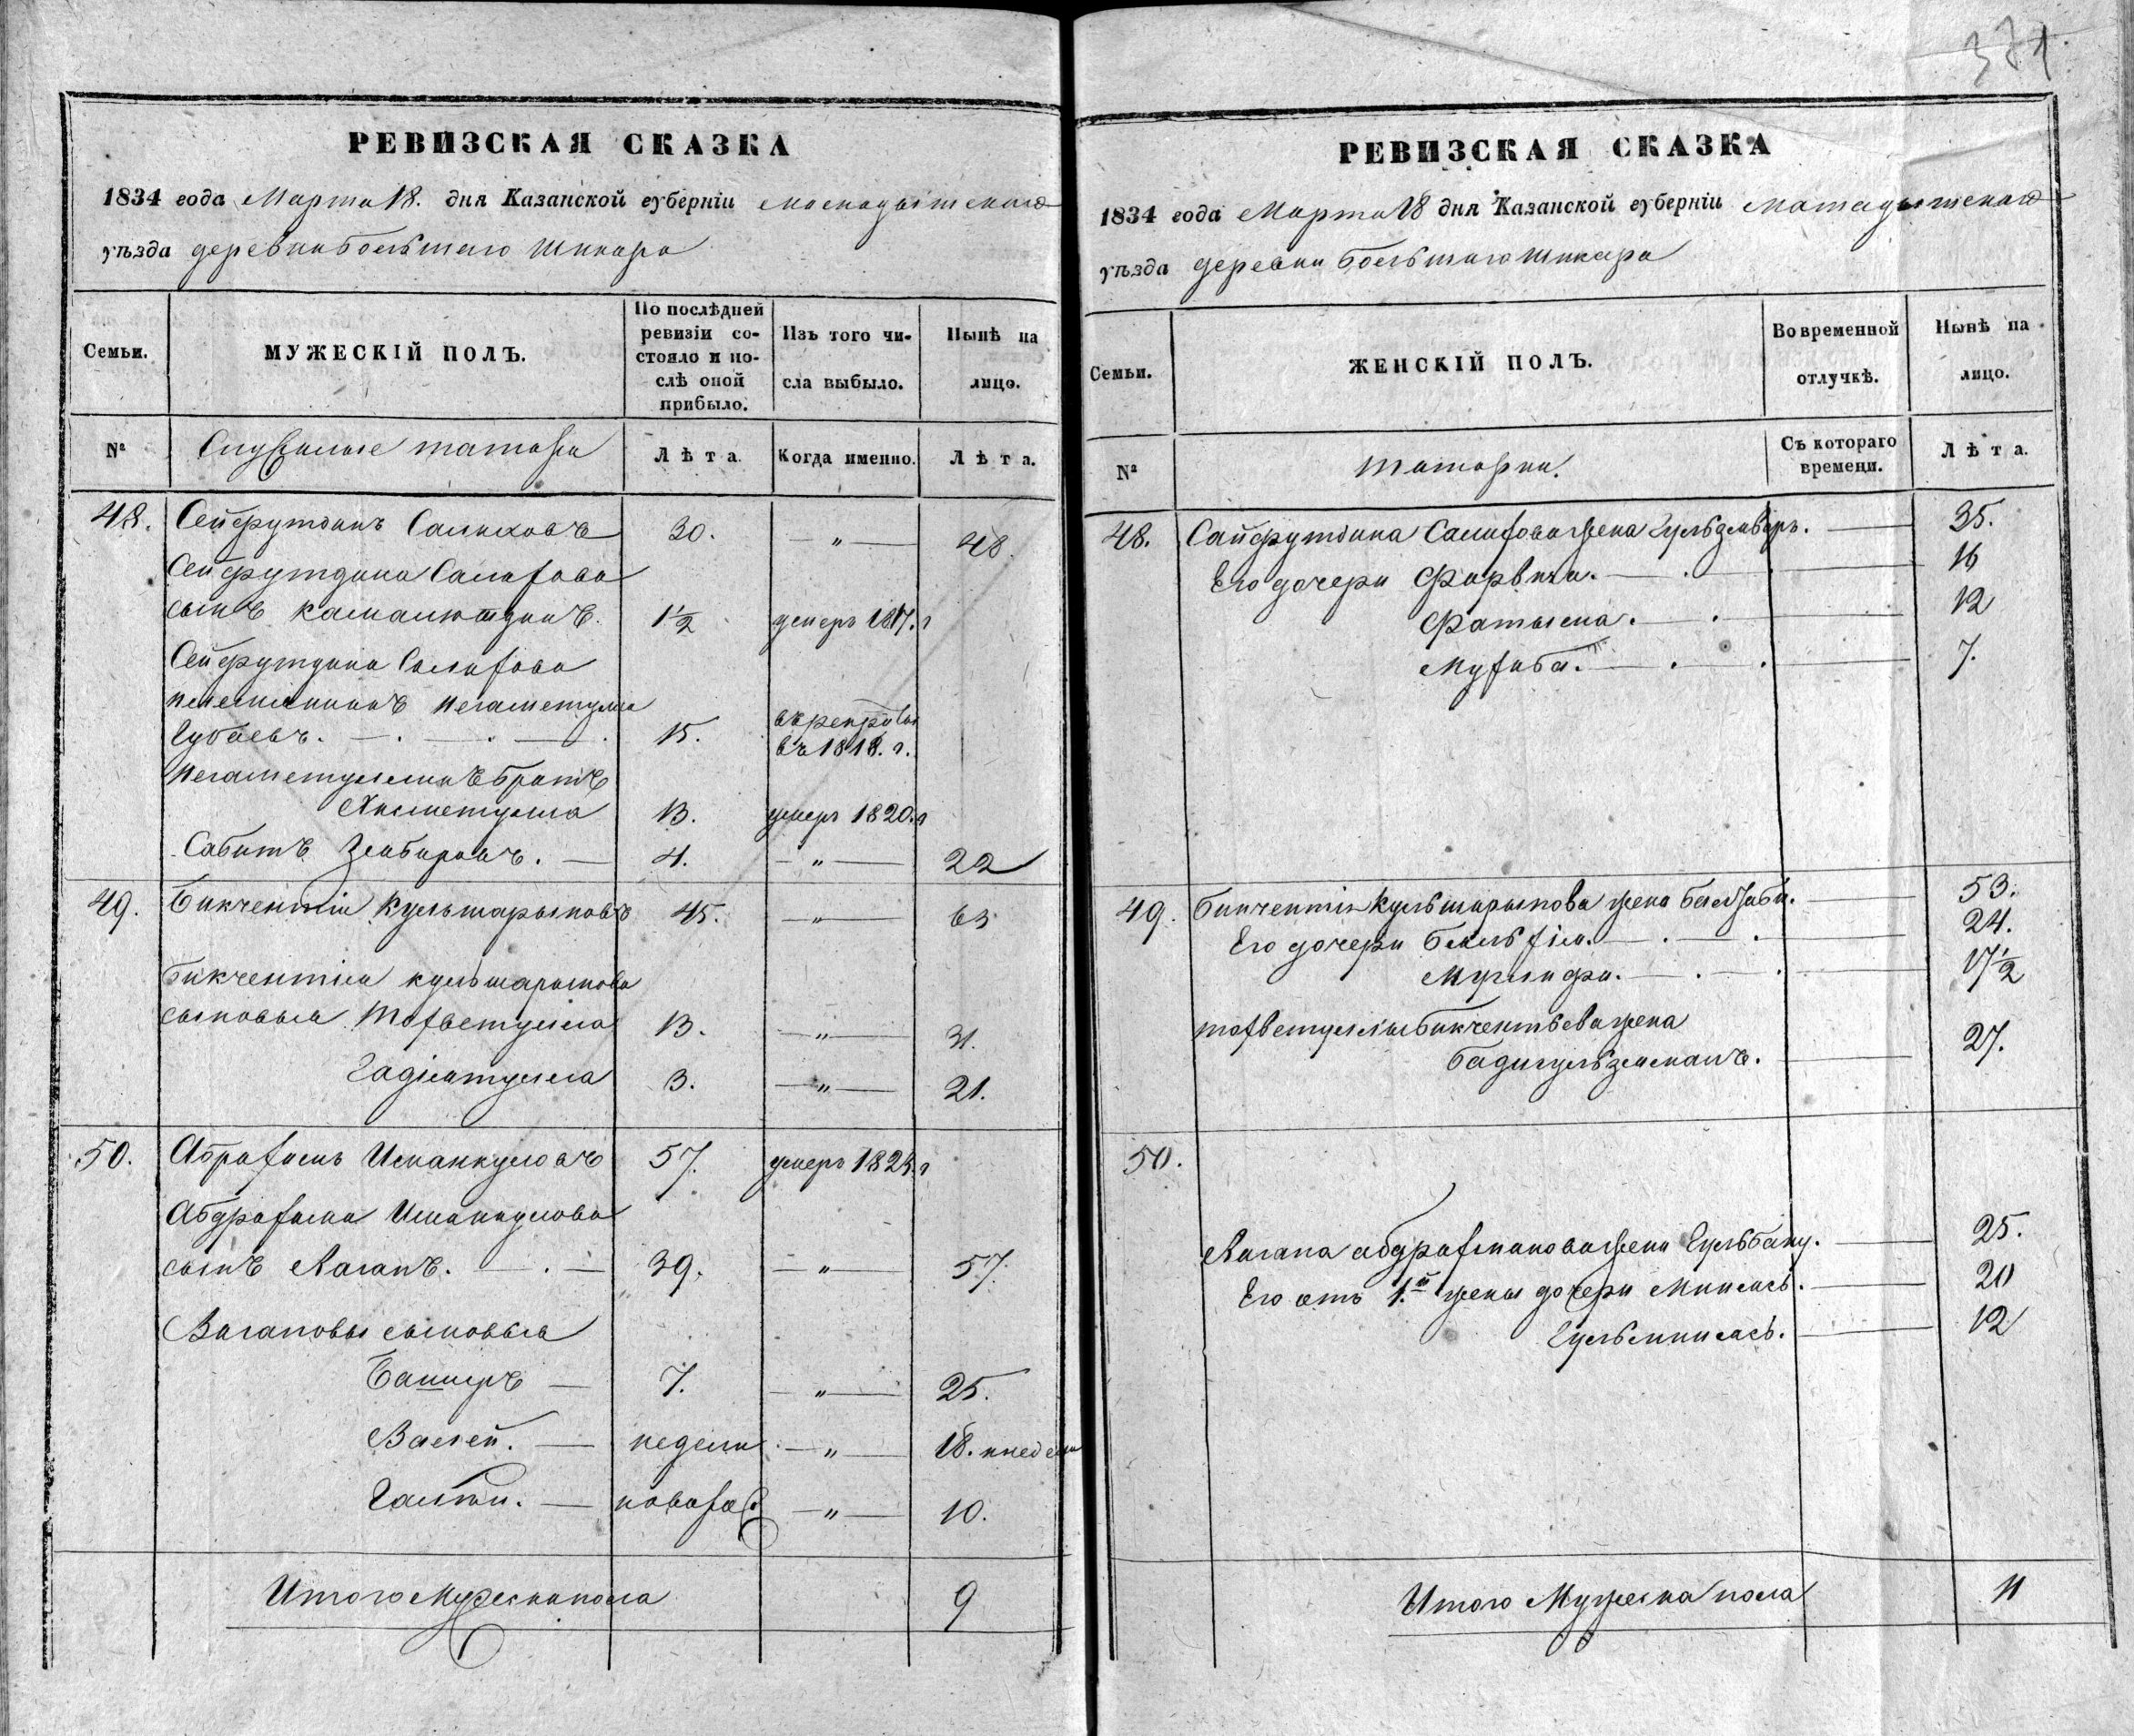 371
РЕВИЗСКАЯ СКАЗКА
1834 года Марта 18. дня Казанской губерніи
уѣзда деревни большаго Шинара
Семьи.
МУЖЕСКІЙ ПОЛЪ.
По послѣдней
ревизіи со-
стояло и по-
слѣ оной
прибыло.
Изъ того чи-
сла выбыло.
Нынѣ на
лицо.
№
Служилые татары
Лѣта.
Когда именно.
Лѣта.
48. Сейфутдинъ Салиховъ 30. — " — 48.
Сейфутдина Салихова
сынъ Камалютдинъ. 1½ умеръ 1817. г
Сейфутдина Салихова
племянникъ Негаметулла
Губаевъ. 15. въ рекруты
въ 1818. г.
Негаметуллинъ братъ
Хисметулла 13. умеръ 1820. г
Сабитъ 4. — " — 22
49. Бикчентій Кульшарыповъ 45. — " — 63
Бикчентія Кульшарыпова
сыновья Тохветулла 13. — " — 31.
Гадіятулла 3. — " — 21.
50. Абрахимъ Иманкуловъ 57. умеръ г
Абдрахима Иманкулова
сынъ Ваганъ. 39. — " — 57.
Вагановы сыновья
Баширъ — 7. — " — 25.
Валей. — недели — " — 18. и недели
— новорож — " — 10.
Итого Мужеска пола 9
РЕВИЗСКАЯ СКАЗКА
1834 года Марта 18 дня Казанской губерніи
уѣзда деревни большаго Шинара
Семьи.
ЖЕНСКІЙ ПОЛЪ.
Во временной
отлучкѣ.
Нынѣ на
лицо.
№
татарки.
Съ котораго
времени.
Лѣта.
48. Сайфутдина Салихова жена 35.
Его дочери 16
12
7.
49. Бикчентія Кульшарыпова жена 53.
Его дочери 24.
17½
Тохветуллы Бикчентьева жена
Бадигульземанъ. 27.
50.
Вагана жена Гульбану. 25.
Его отъ 1.й жены дочери 20
12
Итого Мужеска пола 11